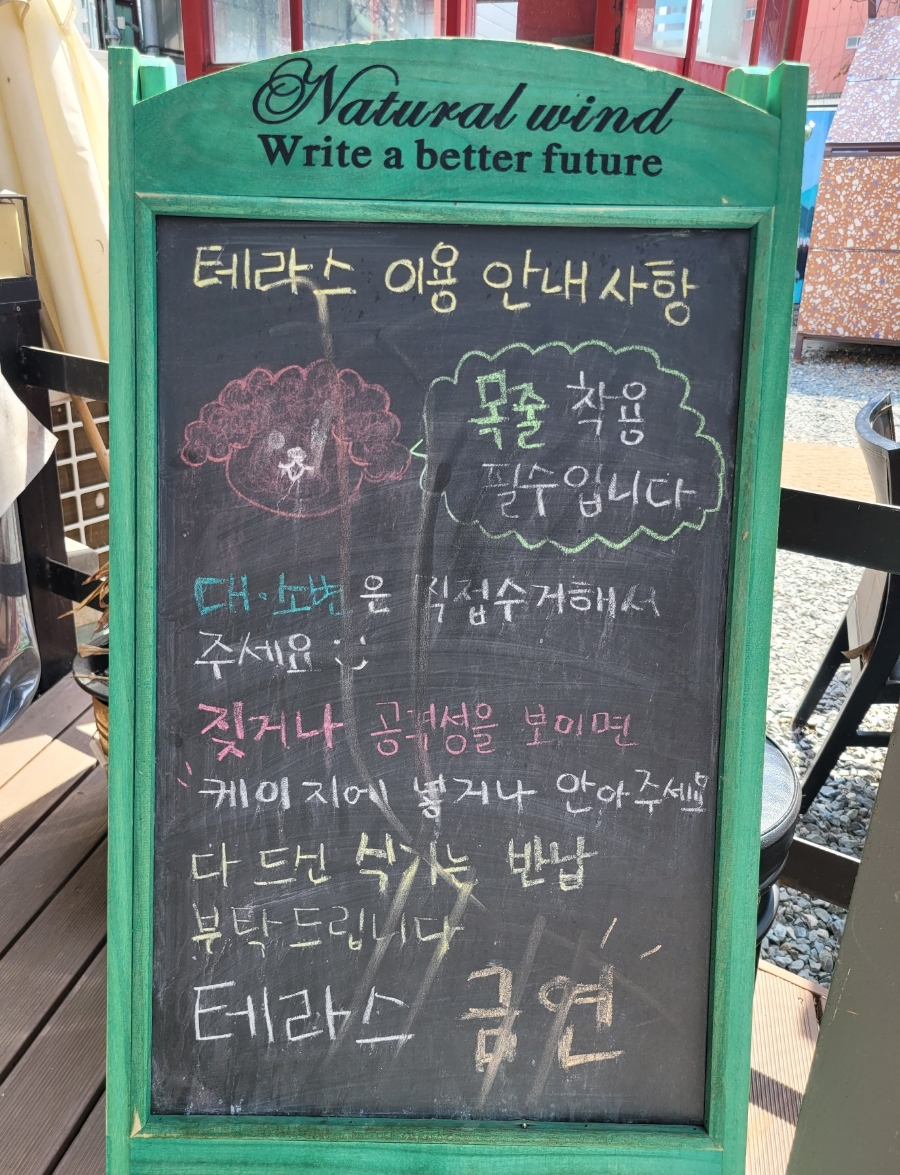 Natural wind
Write a better future
테라스 이용 안내사항
목줄 착용
필수입니다
대·소변은 직접수거해서
주세요 :)
짖거나 공격성을 보이면
케이지에 넣거나 안아주세요
다 드신 식기는 반납
부탁드립니다
테라스 금연